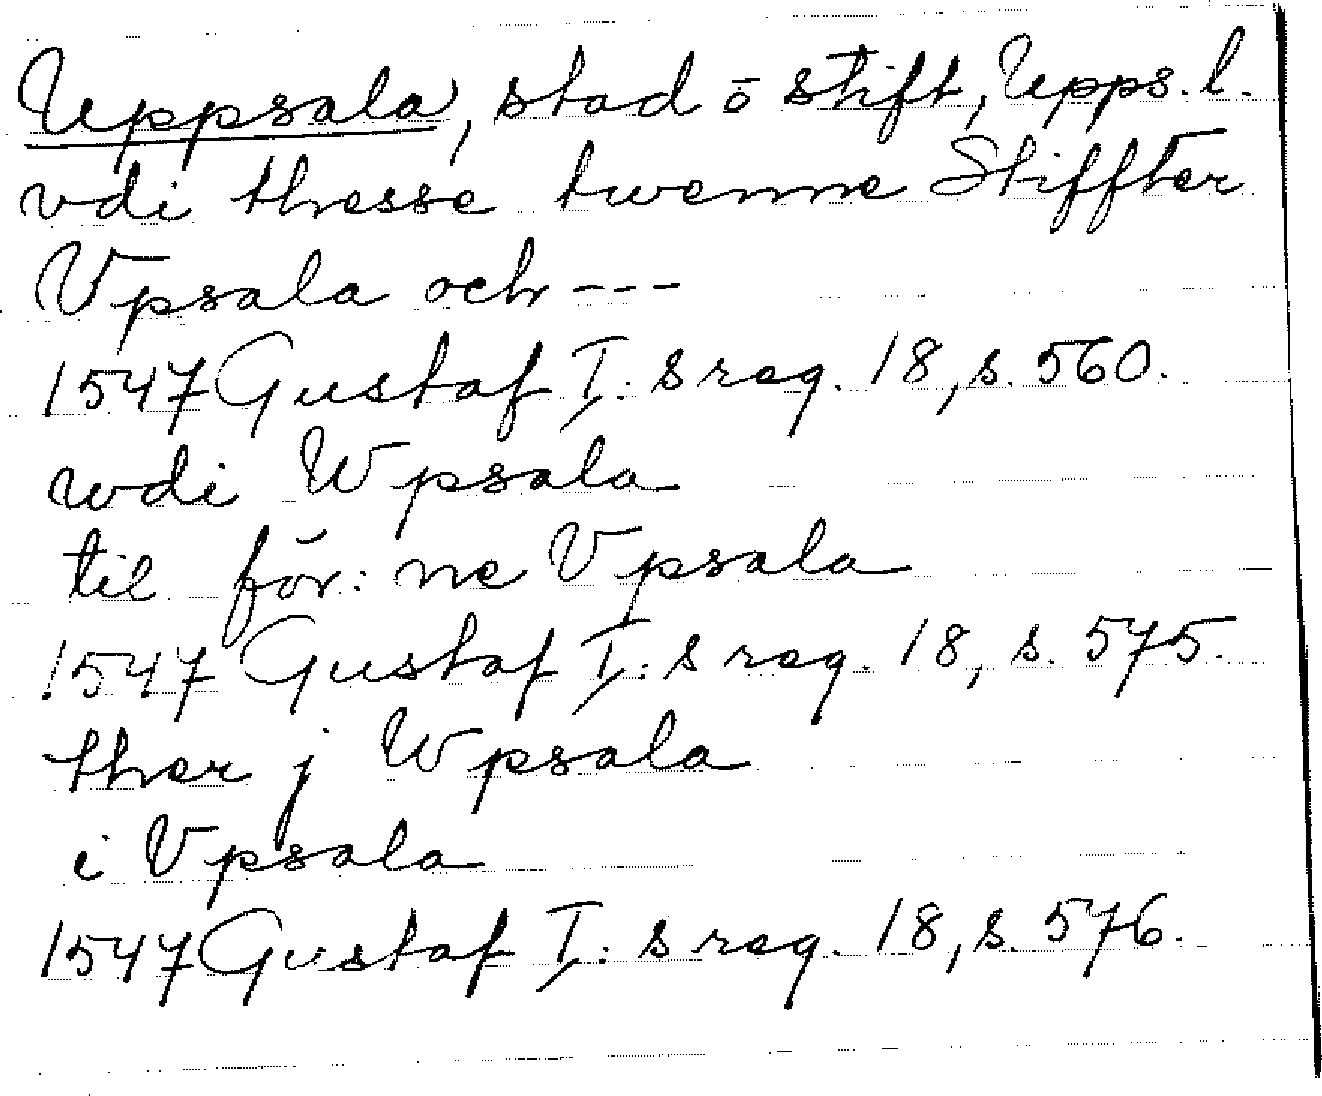 Uppsala, stad ō stift, Upps. l.
vdi thesse twenne Stiffter
Vpsala och ---
1547 Gustaf I: s reg. 18, s. 560.
wdi Wpsala
til för: ne Vpsala
1547 Gustaf I: s reg. 18, s. 575.
ther j Wpsala
i Vpsala
1547 Gustaf I: s reg. 18, s. 576.